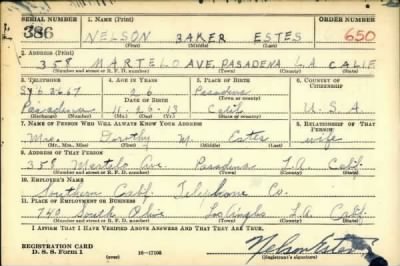 SERIAL NUMBER 1. NAME (Print) ORDER NUMBER
386 NELSON BAKER ESTES 650
(First) (Middle) (Last)
2. ADDRESS (Print)
358 MARTELO AVE, PASADENA L.A CALIF
(Number and street or R. F. D. number) (Town) (County) (State)
3. TELEPHONE 4. AGE IN YEARS 5. PLACE OF BIRTH 6. COUNTRY OF CITIZENSHIP
26 Pasadena
Pasadena DATE OF BIRTH (Town or county)
Calif U.S.A.
(Exchange) (Number) (Mo.) (Day) (Yr.) (State or country)
7. NAME OF PERSON WHO WILL ALWAYS KNOW YOUR ADDRESS 8. RELATIONSHIP OF THAT PERSON
Mrs. Dorothy M. Estes wife
(Mr., Mrs., Miss) (First) (Middle) (Last)
9. ADDRESS OF THAT PERSON
358 Martelo Ave Pasadena L.A Calif.
(Number and street or R. F. D. number) (Town) (County) (State)
10. EMPLOYER'S NAME
Southern Calif Telephone Co.
11. PLACE OF EMPLOYMENT OR BUSINESS
740 South Olive Los Angeles L.A. Calif.
(Number and street or R. F. D. number) (Town) (County) (State)
I AFFIRM THAT I HAVE VERIFIED ABOVE ANSWERS AND THAT THEY ARE TRUE.
REGISTRATION CARD
D. S. S. Form 1 16—17105 Nelson Estes
(Registrant's signature)